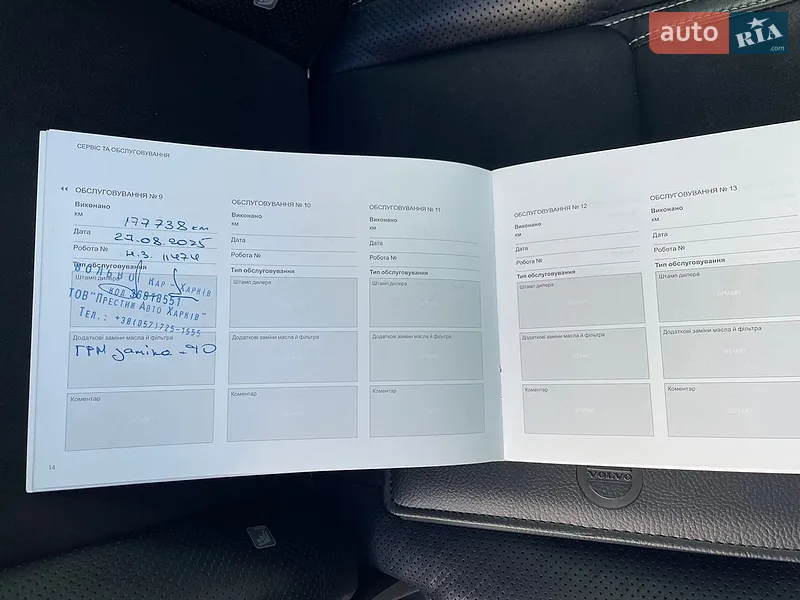 auto RIA .com
СЕРВІС ТА ОБСЛУГОВУВАННЯ
ОБСЛУГОВУВАННЯ № 9
Виконано
км 177 738 км
Дата 27.08.2025
Робота № н.з. 11474
Тип обслуговування
Штамп дилера
ВОЛЬВО КАР - ХАРКІВ
КОД 36818551
ТОВ "ПРЕСТИЖ АВТО ХАРКІВ"
ТЕЛ.: +38(057)725-1555
Додаткові заміни масла й фільтра
ГРМ заміна - ТО
Коментар
14
ОБСЛУГОВУВАННЯ № 10
Виконано
км
Дата
Робота №
Тип обслуговування
Штамп дилера
Додаткові заміни масла й фільтра
Коментар
ОБСЛУГОВУВАННЯ № 11
Виконано
км
Дата
Робота №
Тип обслуговування
Штамп дилера
Додаткові заміни масла й фільтра
Коментар
ОБСЛУГОВУВАННЯ № 12
Виконано
км
Дата
Робота №
Тип обслуговування
Штамп дилера
Додаткові заміни масла й фільтра
Коментар
ОБСЛУГОВУВАННЯ № 13
Виконано
км
Дата
Робота №
Тип обслуговування
Штамп дилера
Додаткові заміни масла й фільтра
Коментар
VOLVO